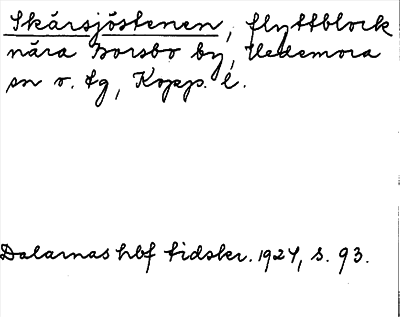 Skärsjöstenen, flyttblock
nära Borsbo by, Hedemora
sn o. tg, Kopp. l.
Dalarnas hbf tidskr. 1927, s. 93.